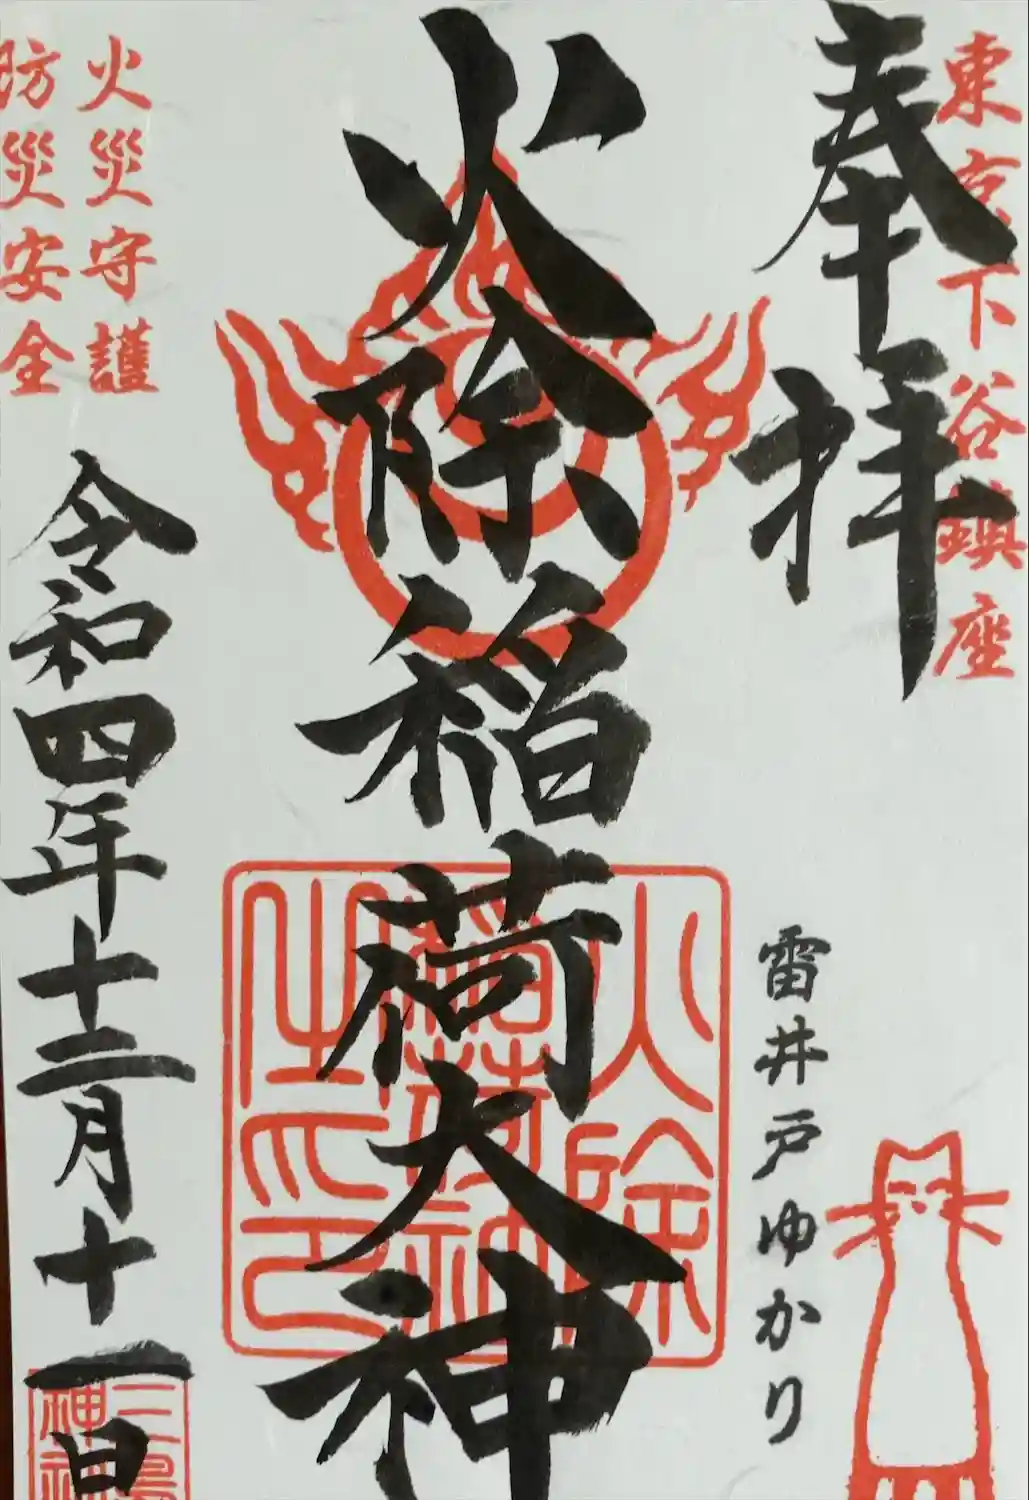 東京下谷鎮座
奉拝
雷井戸ゆかり
火除稲荷大神
火除
稲荷神
之印
火災守護
防災安全
令和四年十二月十一日
三島
神社